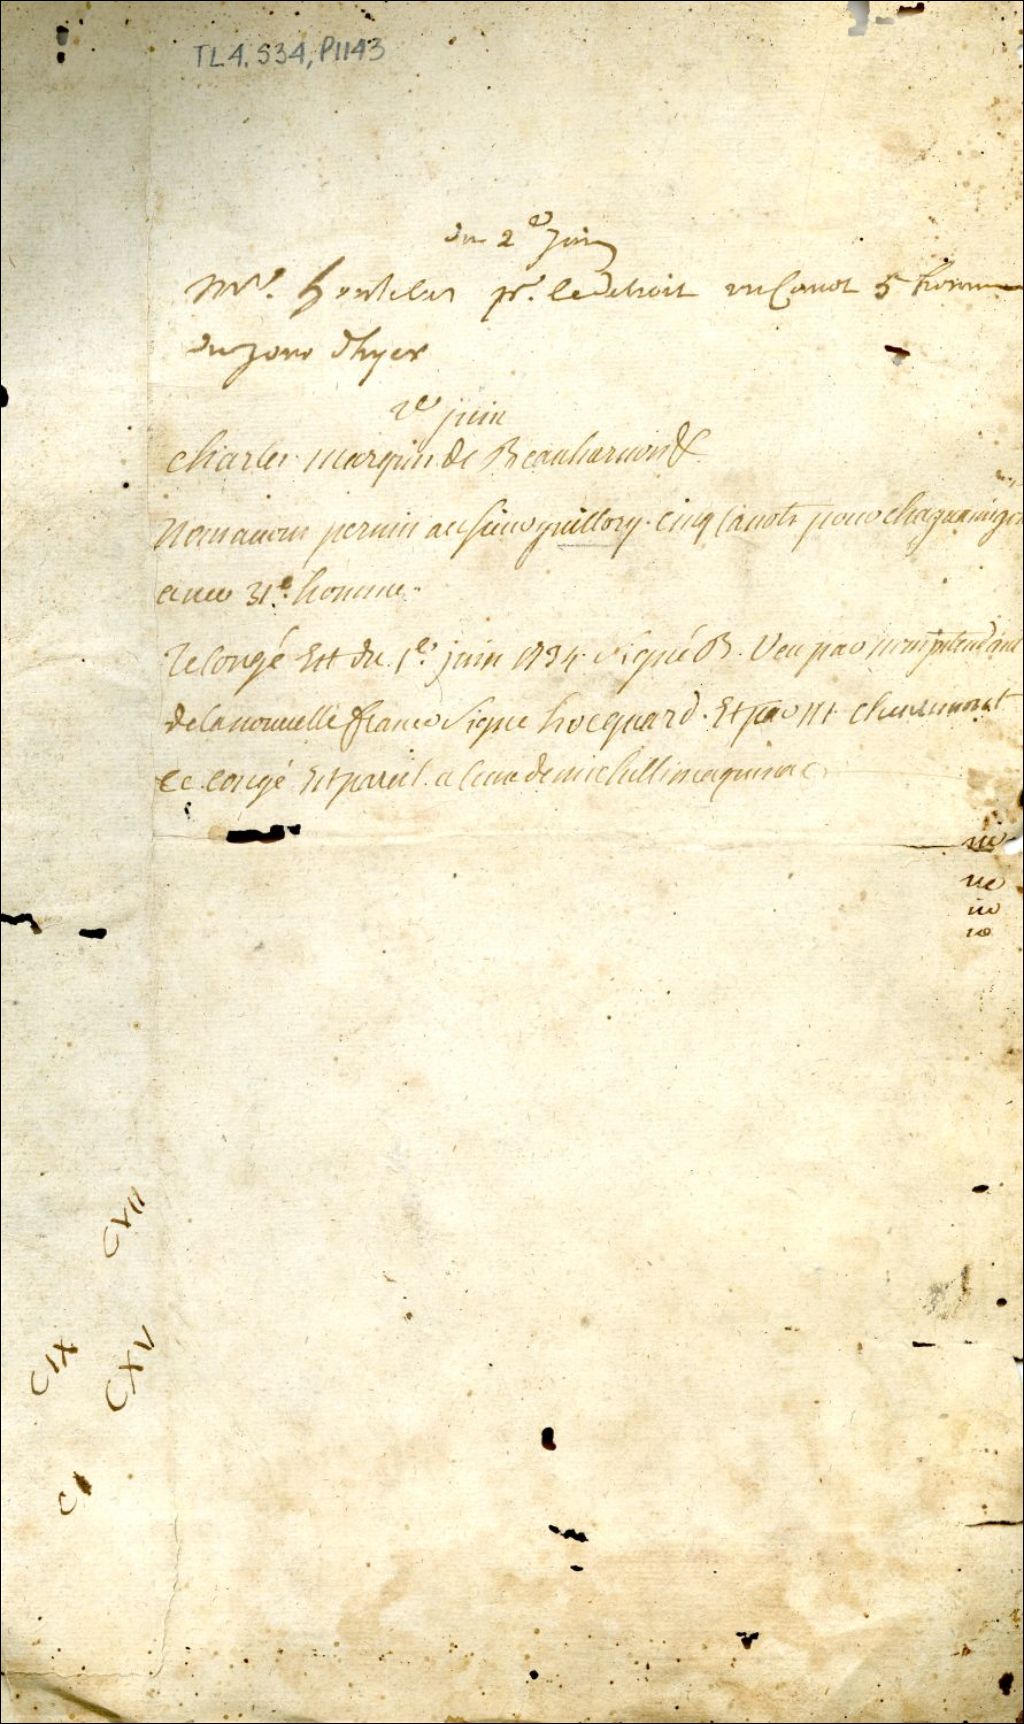 TL4, S34, P1143
du 2e Juin
Mr. pr. le detroit un Canot 5 homme
du Jour d'hyer
1er juin
Charles marquis de Beauharnois &
Nous avons permis au sieur guillory cinq Canots pour
avec 31e. homme.
Le congé Est du 1er. juin 1734. signé B. Veu par nous jntendant
de la nouvelle france signé hocquard. Et par Mr
Ce congé Est pareil a de michillimaquinac
ne
ne
CVII
CIX
CXV